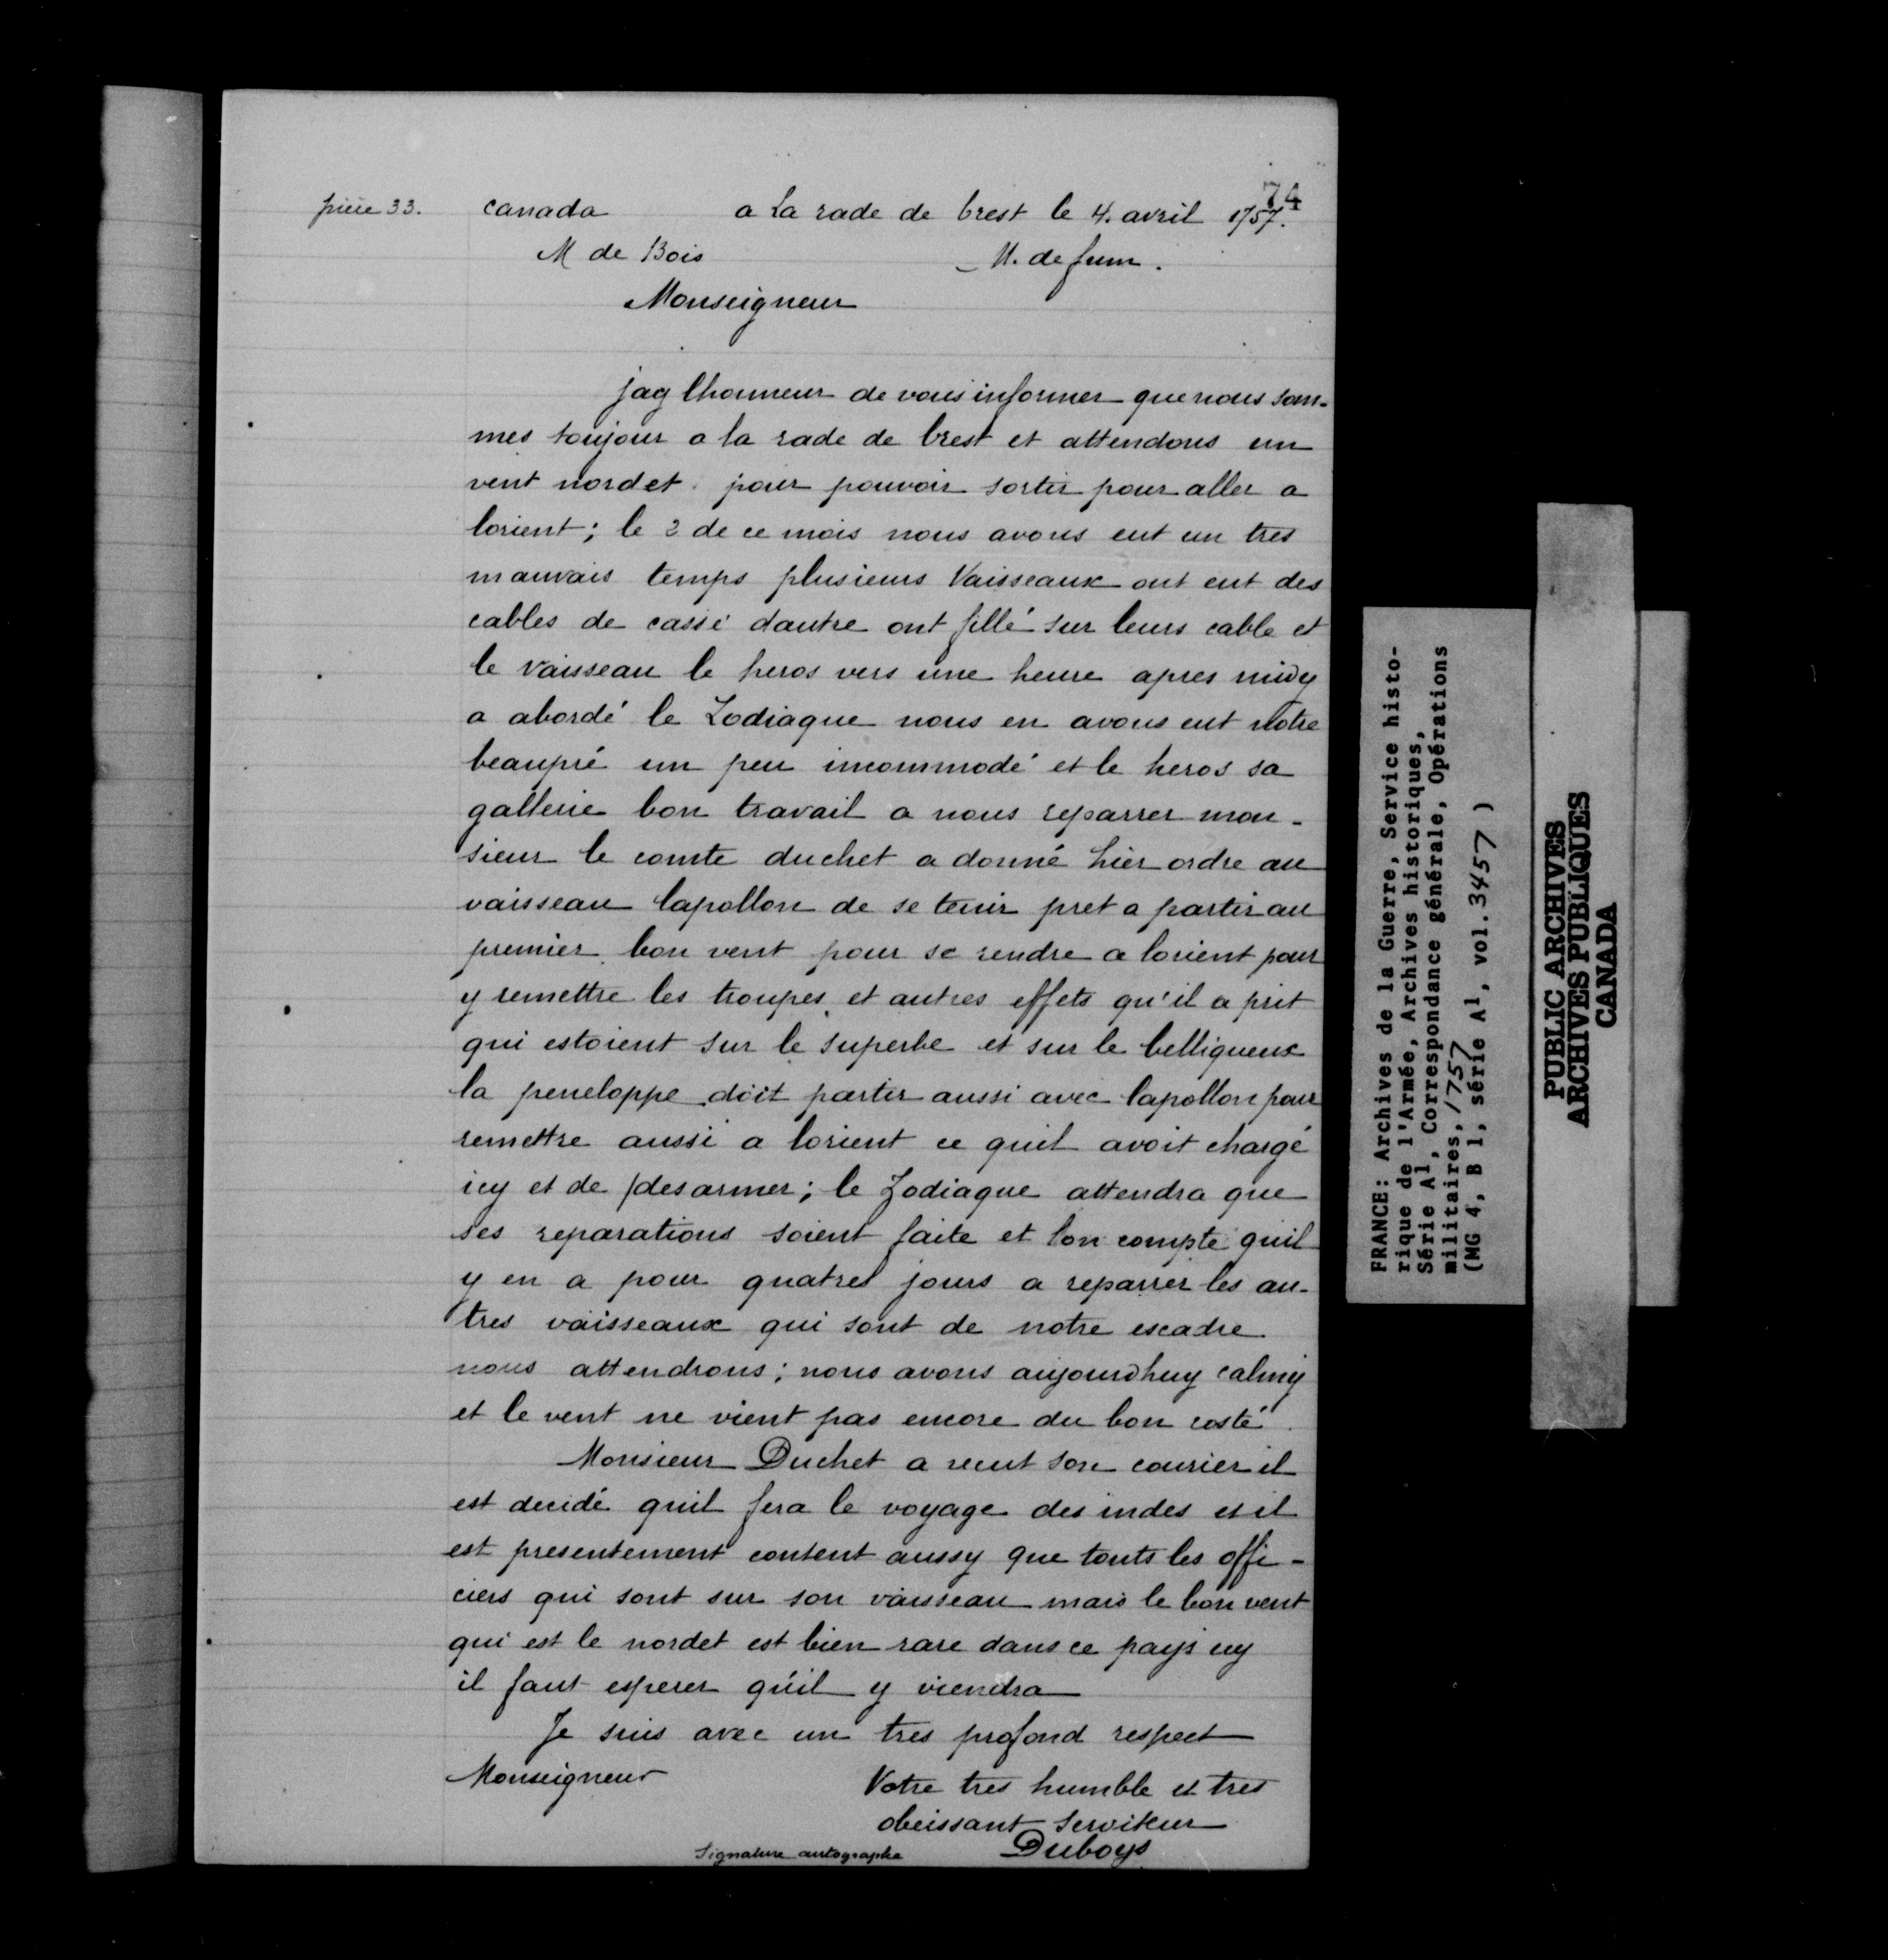 74
pièce 33. canada a la rade de brest le 4. avril 1757.
M de Bois M. de
Monseigneur
jay lhonneur de vous informer que nous som-
mes toujour a la rade de brest et attendons un
vent nordet pour pouvoir sortir pour aller a
lorient; le 2 de ce mois nous avons eut un tres
mauvais temps plusieurs Vaisseaux ont eut des
cables de cassé dautre ont fillé sur leurs cable et
le vaisseau le heros vers une heure apres midy
a abordé le Zodiaque nous en avons eut notre
beaupré un peu incommodé et le heros sa
gallerie bon travail a nous reparrer mon-
sieur le comte duchet a donné hier ordre au
vaisseau lapollon de se tenir pret a partir au
premier bon vent pour se rendre a lorient pour
y remettre les troupes et autres effets qu'il a prit
qui estoient sur le superbe et sur le belliqueux
la peneloppe doit partir aussi avec lapollon pour
remettre aussi a lorient ce quil avoit chargé
icy et de desarmer; le Zodiaque attendra que
ses reparations soient faite et lon compte quil
y en a pour quatres jours a reparrer les au-
tres vaisseaux qui sont de notre escadre
nous attendrons; nous avons aujourdhuy calmy
et le vent ne vient pas encore du bon costé.
Monsieur Duchet a recut son courier il
est decidé quil fera le voyage des indes et il
est presentement content aussy que touts les offi-
ciers qui sont sur son vaisseau mais le bon vent
qui est le nordet est bien rare dans ce pays icy
il faut esperer qu'il y viendra
Je suis avec un tres profond respect
Monseigneur Votre tres humble et tres
obeissant serviteur
Signature autographe Duboys
FRANCE: Archives de la Guerre, Service histo-
rique de l'Armée, Archives historiques,
Série A1, Correspondance générale, Opérations
militaires, 1757
(MG 4, B 1, série A1, vol. 3457 )
PUBLIC ARCHIVES
ARCHIVES PUBLIQUES
CANADA